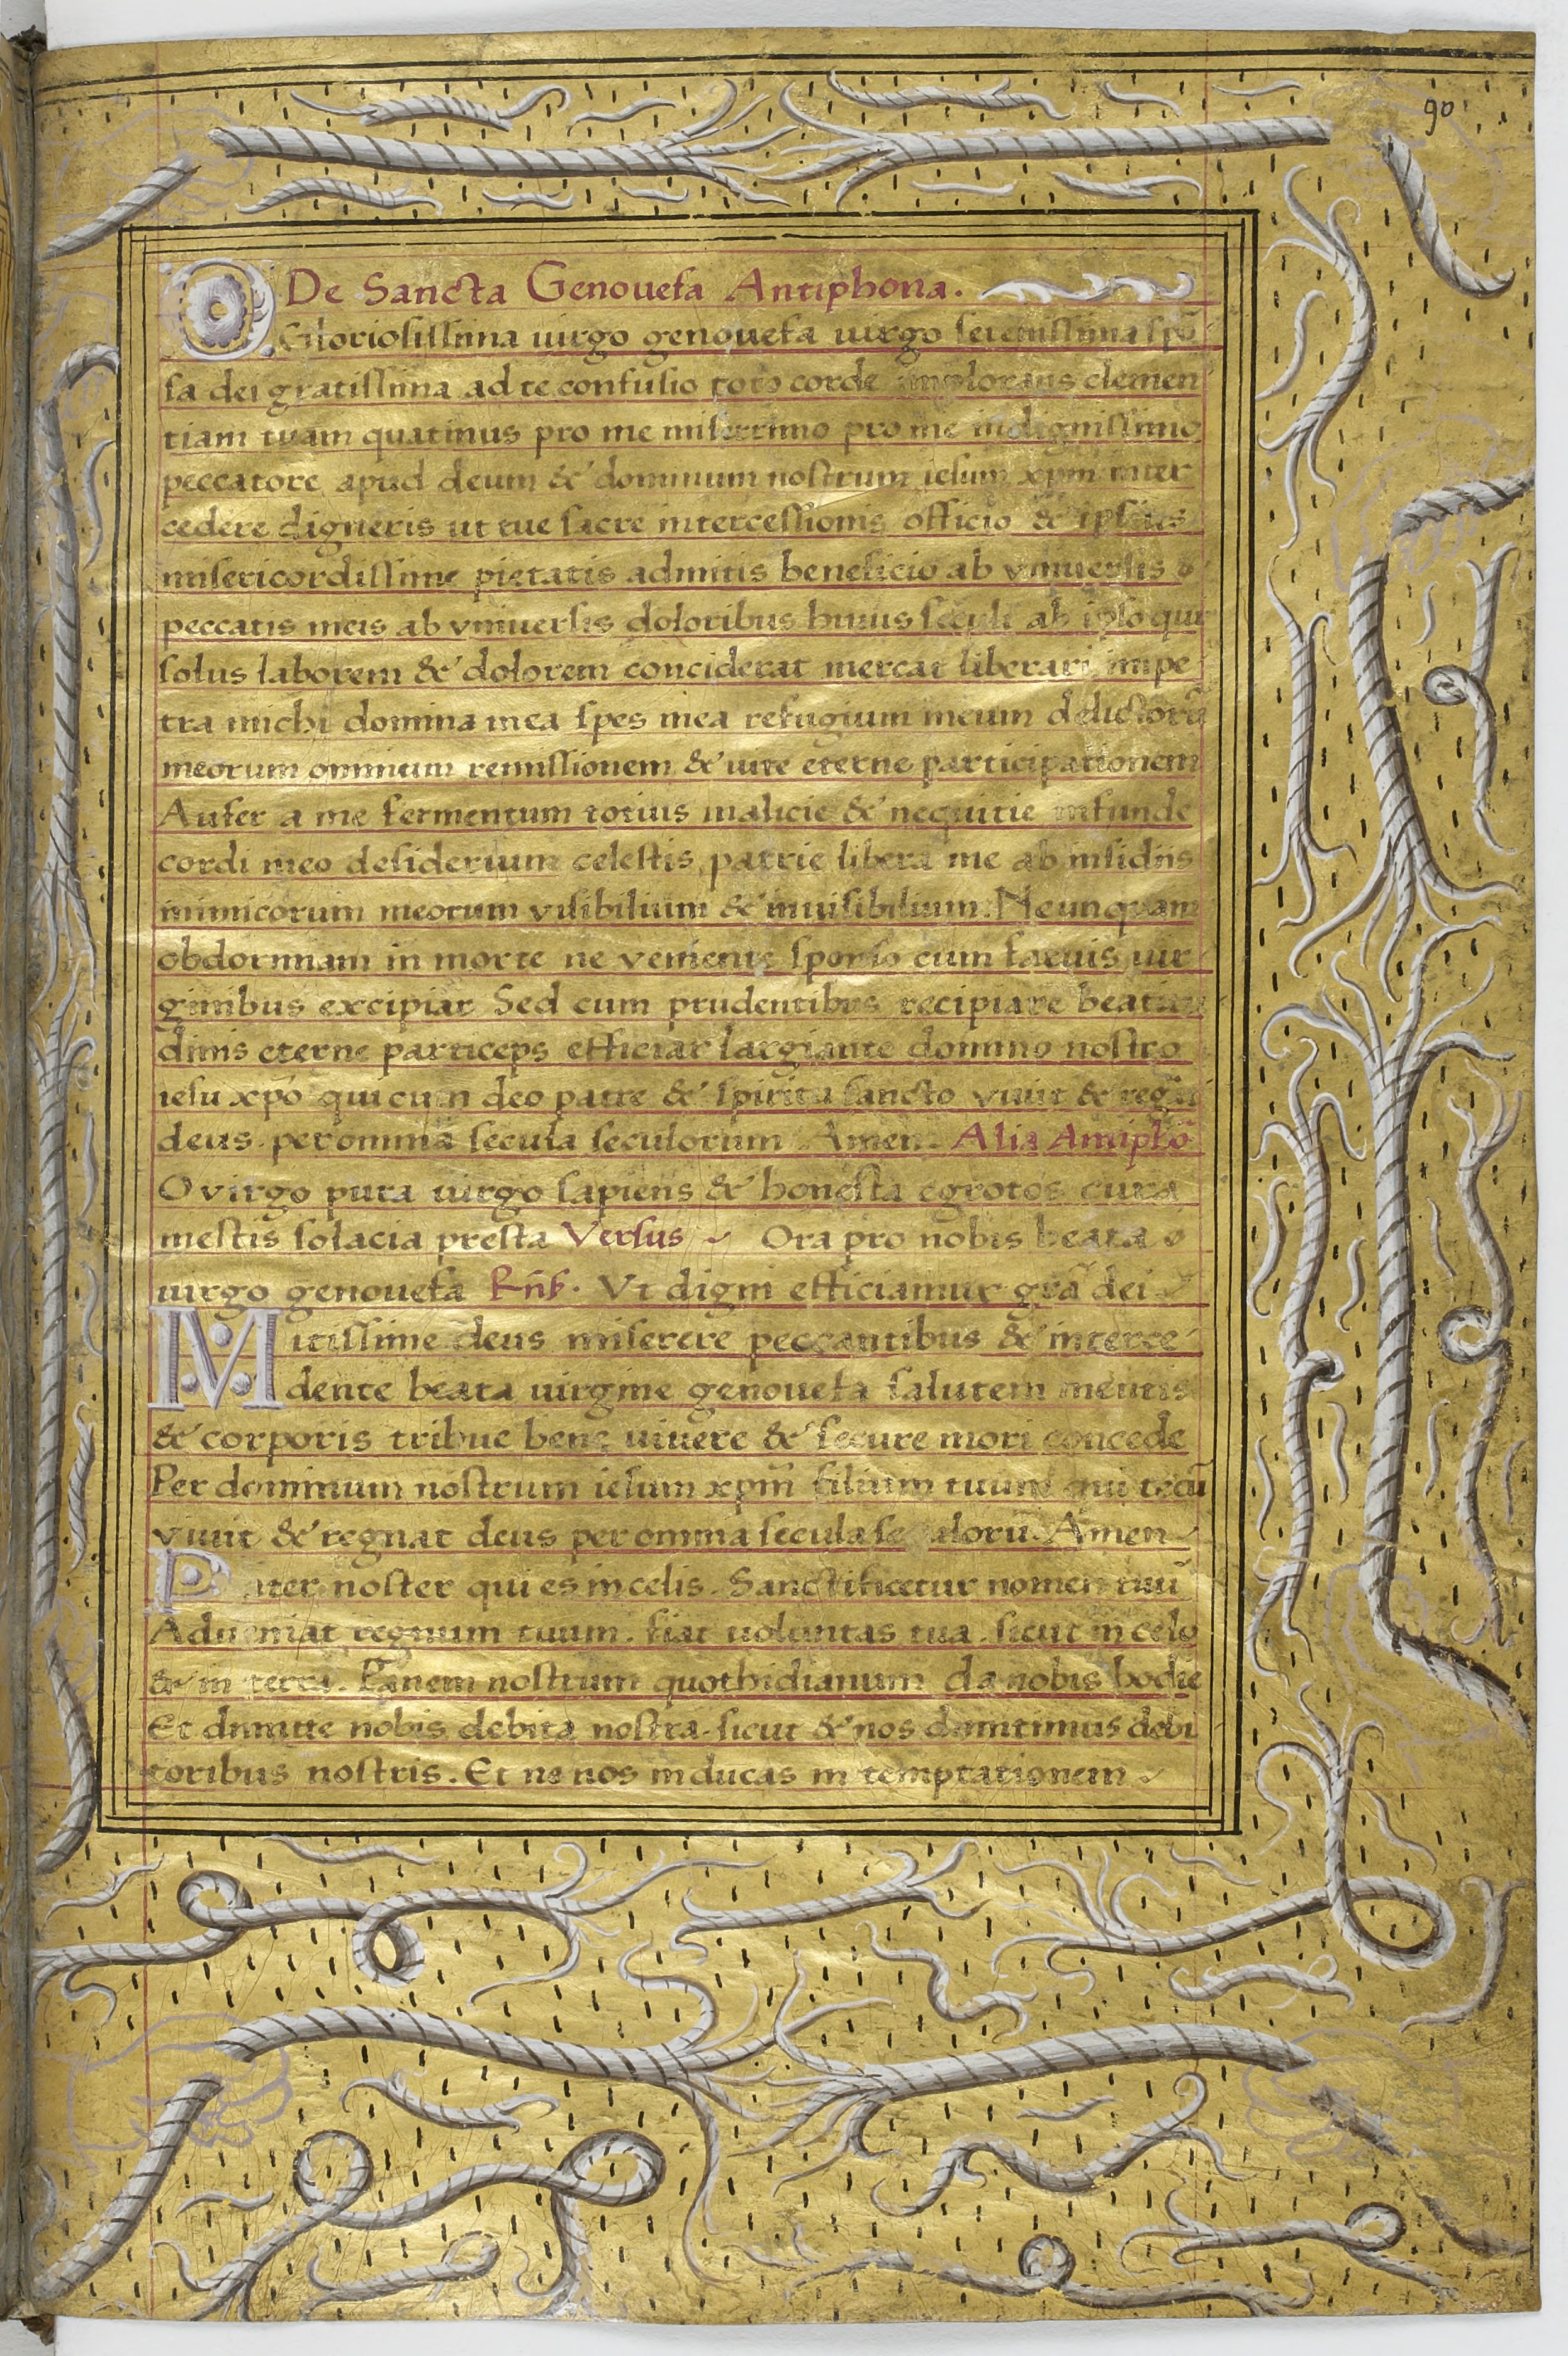 90
De Sancta Genouefa Antiphona.
O Gloriosissima uirgo genouefa uirgo serenissima spō
sa dei gratissima ad te confusio toto corde implorans clemen
tiam tuam quatinus pro me miserrimo pro me indignissimo
peccatore apud deum & dominum nostrum iesum xpm inter
cedere digneris ut tue sacre intercessionis officio & ipsius
misericordissime pietatis admitis beneficio ab vniuersis
peccatis meis ab vniuersis doloribus huius seculi ab ipso qui
solus laborem & dolorem conciderat mercar liberari impe
tra michi domina mea spes mea refugium meum delictorū
meorum omnium remissionem & uite eterne participationem
Aufer a me fermentum totius malicie & nequitie infunde
cordi meo desiderium celestis patrie libera me ab insidiis
inimicorum meorum visibilium & inuisibilium. Ne unquam
obdormiam in morte ne veniente sponso cum fatuis uir
ginibus excipiar Sed cum prudentibus recipiare beatitu
dinis eterne particeps efficiar largiante domino nostro
iesu xpō qui cum deo patre & spiritu sancto viuit & regnat
deus per omnia secula seculorum Amen. Alia Antiphō
O virgo pura uirgo sapiens & honesta egrotos cura
mestis solacia presta Versus Ora pro nobis beata
uirgo genouefa Rn̄s. Vt digni efficiamur grā dei
Mitissime deus miserere peccantibus & interce
dente beata uirgine genouefa salutem mentis
& corporis tribue bene uiuere & secure mori concede
Per dominum nostrum iesum xpm̄ filium tuum qui tecū
viuit & regnat deus per omnia secula seculorū. Amen
Pater noster qui es in celis. Sanctificetur nomen tuū
Adueniat regnum tuum. fiat uoluntas tua. sicut in celo
& in terra. Panem nostrum quothidianum da nobis hodie
Et dimitte nobis debita nostra. sicut & nos dimitimus debi
toribus nostris. Et ne nos inducas in temptationem